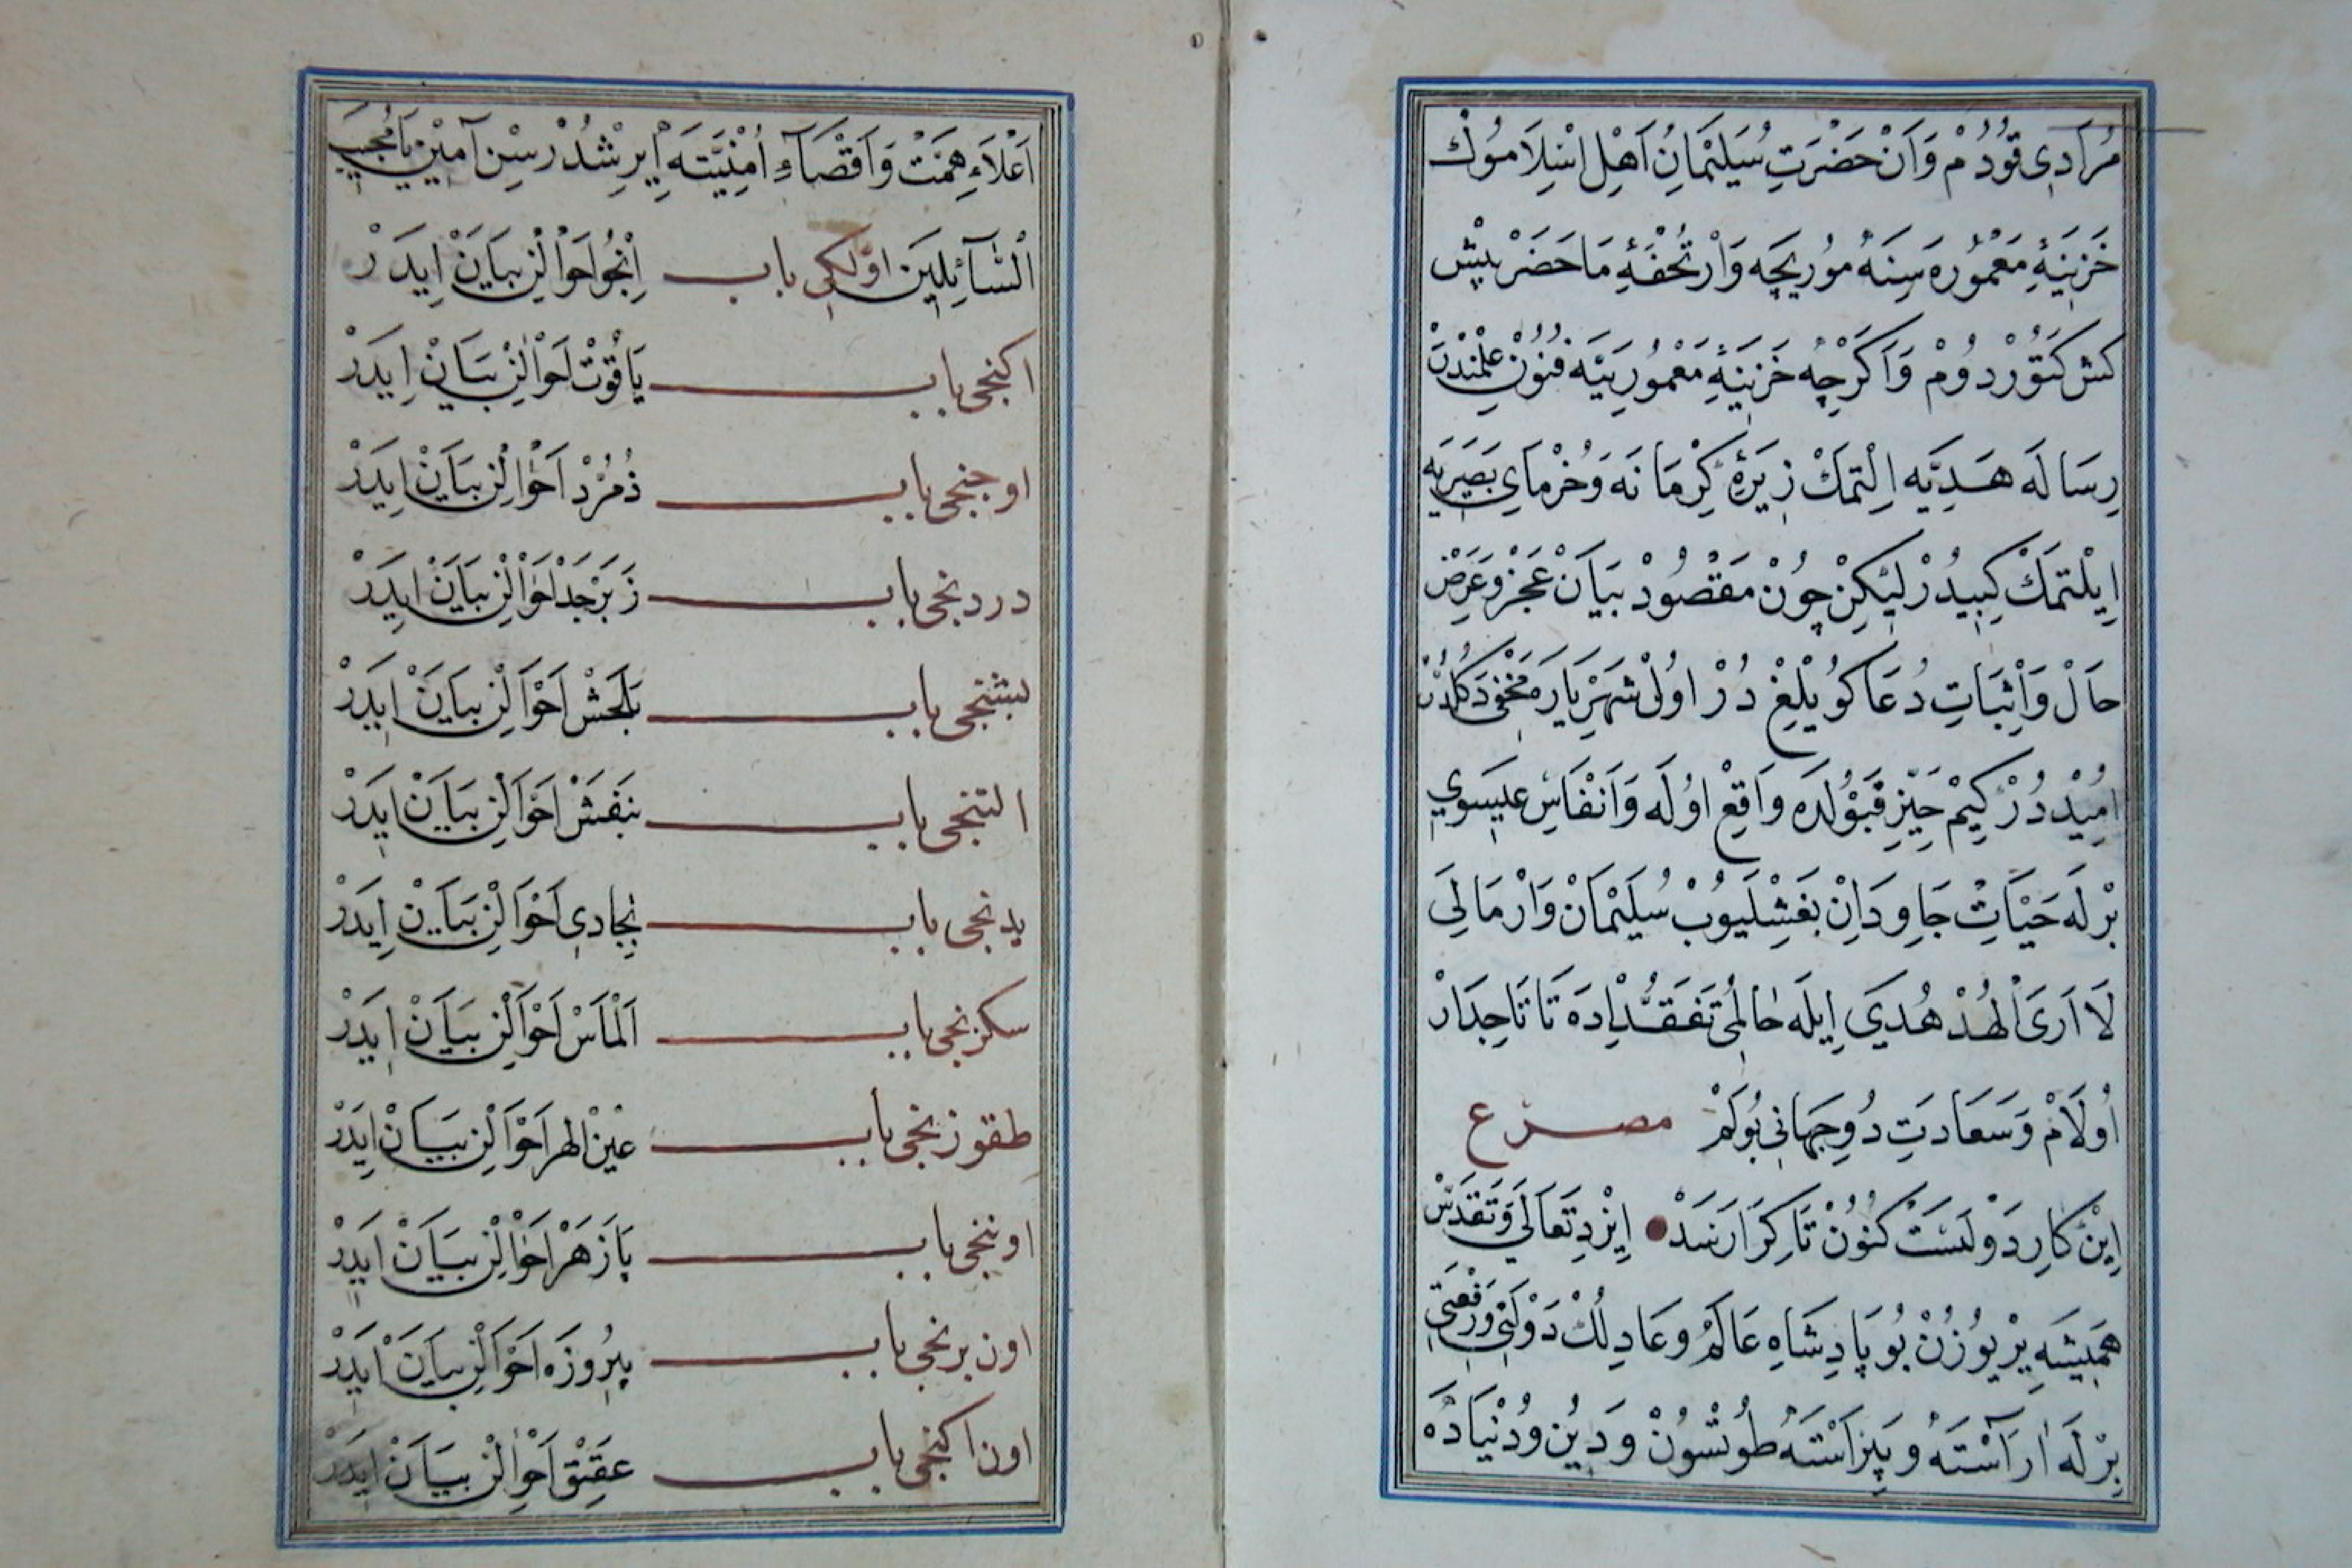 مُرَادِی قُودُمْ وَاَنْ حَضْرَتِ سُلَیْمَانِ اَهْلِ اِسْلَامُوكْ
خَزِینَۀِ مَعْمُورَه سِنَهْ مُورِیچَه وَارْ تُحْفَۀِ مَا حَضَرْ پِیشْ
كَش كَتُورْدُومْ وَاَكَرْچِه خَزِینَۀِ مَعْمُورِیَیَه فُنُونِ عِلْمْنْدَنْ
رِسَالَه هَدِیَّه اِلْتمَكْ زِیرَۀِ كِرْمَانَه وَخُرْمَایِ بَصَرِیَه
اِیلْتمَكْ كِبِیدُرْ لیٰكِنْ چُونْ مَقْصُودْ بَیَانِ عَجْزْ وعَرْضِ
حَالْ وَاِثْبَاتِ دُعَا كُویْلِغِ دُرْ اوُلْ شَهَرْیَارَه مَخْفِی دَكُلْدُرْ
اُمِیْددُرْ كِیمْ حَیِّزِ قَبُولَدَه وَاقِعْ اوُلَه وَاَنْفَاسِ عِیسَوِی
بِرْلَه حَیَاتِ جَاوِدَانِ بَغِشْلَیُوبْ سُلَیْمَانْ وَارْ مَالِیَ
لَا اَرَی الْهُدْهُدَی اِیلَه حٰالُمِی تَفَقُّدْ اِدَه تَا تَاجِدَارْ
اُولَامْ وَسَعَادَتِ دُوجَهَانِی بُولَمْ مصرع
اِینْ كَارِ دَوْلَتَسْتْ كنُونْ تَا كِرَا رَسَدْ اِیزْدِ تَعَالَی وَتَقَدَّسْ
هَمِیشَه یِرْ یوُزُنْ بُو پَادِشَاهِ عَالَمُ وعَادِلُكْ دَوْلَتِی وَرِفْعَتِی
بِرْلَه اٰرَاسْتَه وَپِیرَاسْتَه طُوتْسُونْ وَدِینْ وَدُنْیَادَه
اَعْلَاءِ هِمَّتْ وَاَقْصَاءِ اُمْنِیَّتَه اِیرِشْدُرْسِنْ آمِیْنْ یَا مُجِیبَ
السَّآئِلِینَ اوّلكی باب اِنْجُو اَحْوَالِنْ بَیَانْ اِیدَرْ
اكنجی باب یَاقُوتْ اَحْوَالِنْ بَیَانْ اِیدَرْ
اوجنجی باب ذُمُرُّدْ اَحْوَالِنْ بَیَانْ اِیدَرْ
دردنجی باب زَبَرْجَدْ اَحْوَالِنْ بَیَانْ اِیدَرْ
بشنجی باب بَلَخْشْ اَحْوَالِنْ بَیَانْ اِیدَرْ
التنجی باب بَنَفَشْ اَحْوَالِنْ بَیَانْ اِیدَرْ
یدنجی باب بِجَادِی اَحْوَالِنْ بَیَانْ اِیدَرْ
سكزنجی باب اَلْمَاسْ اَحْوَالِنْ بَیَانْ اِیدَرْ
طقوزنجی باب عَیْنْ الهر اَحْوَالِنْ بَیَانْ اِیدَرْ
اوننجی باب پَازَهْرْ اَحْوَالِنْ بَیَانْ اِیدَرْ
اون برنجی باب پِیرُوزَه اَحْوَالِنْ بَیَانْ اِیدَرْ
اون اكنجی باب عَقِیْقْ اَحْوَالِنْ بَیَانْ اِیدَرْ